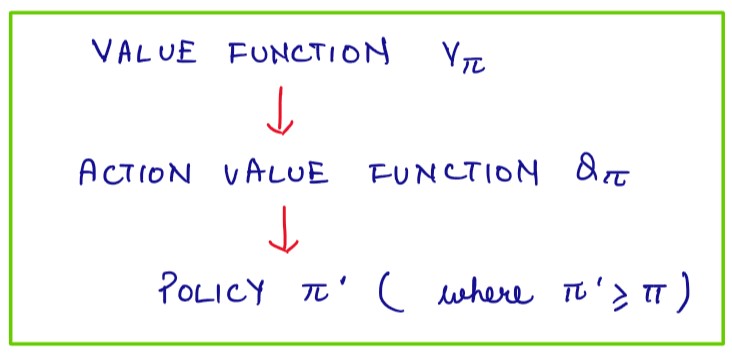 VALUE FUNCTION V_π
ACTION VALUE FUNCTION Q_π
POLICY π' ( where π' ⩾ π )